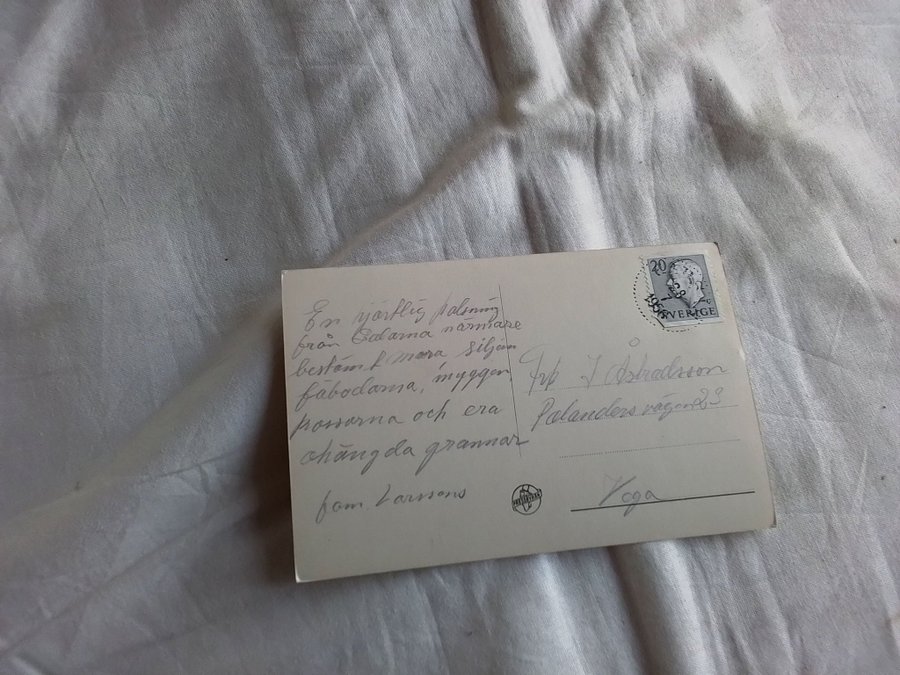 En hjärtlig hälsning
från Dalarna närmare
bestämt mora siljan
fäbodarna, myggen
kossorna och era
ohängda grannar
fam. Larssons
20
SVERIGE
195
J Åstradsson
Palanders vägen 23
Vega